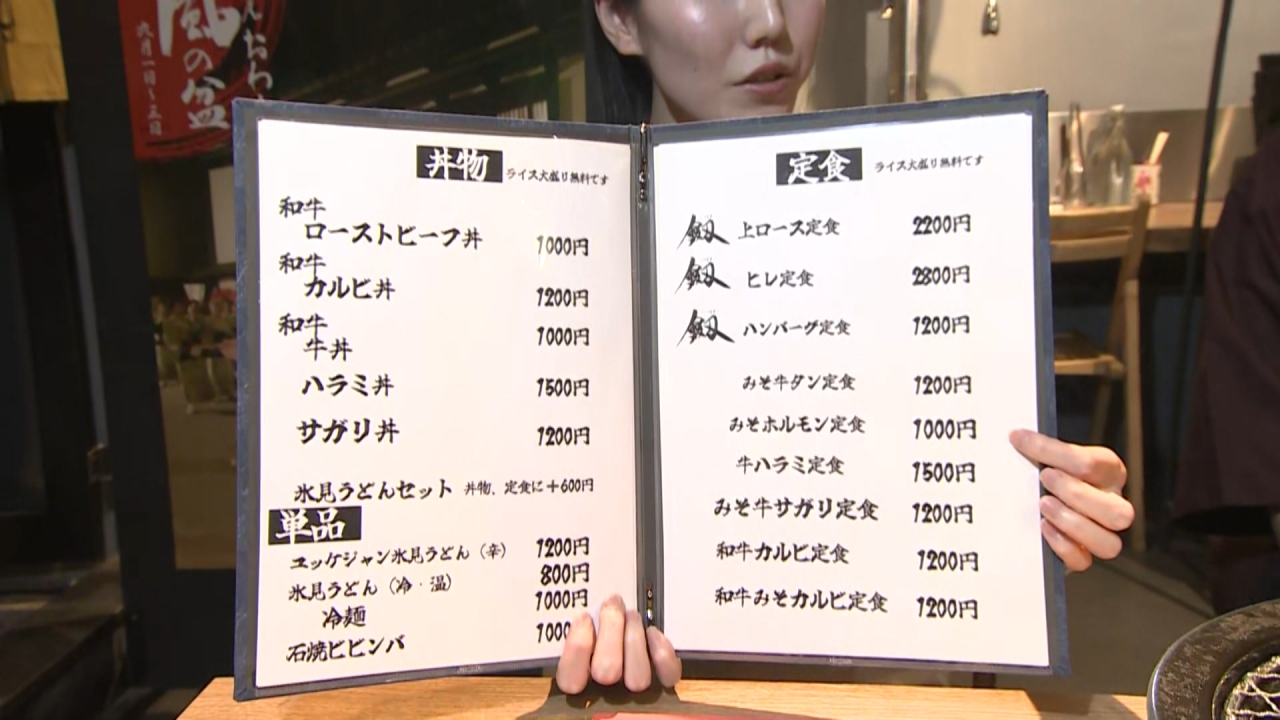 風の盆
九月一日～三日
おわ
丼物 ライス大盛り無料です
和牛
ローストビーフ丼 1000円
和牛
カルビ丼 1200円
和牛
牛丼 1000円
ハラミ丼 1500円
サガリ丼 1200円
氷見うどんセット 丼物、定食に+600円
単品
ユッケジャン氷見うどん（辛） 1200円
氷見うどん（冷・温） 800円
冷麺 1000円
石焼ビビンバ 1000
定食 ライス大盛り無料です
上ロース定食 2200円
ヒレ定食 2800円
ハンバーグ定食 1200円
みそ牛タン定食 1200円
みそホルモン定食 1000円
牛ハラミ定食 1500円
みそ牛サガリ定食 1200円
和牛カルビ定食 1200円
和牛みそカルビ定食 1200円